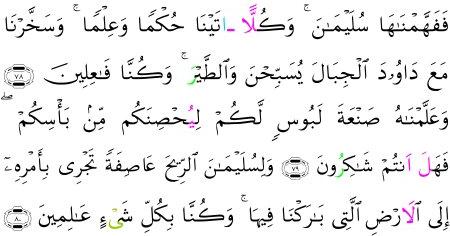 فَفَهَّمْنَٰهَا سُلَيْمَٰنَ ۚ وَكُلًّا ـاتَيْنَا حُكْمًا وَعِلْمًا ۚ وَسَخَّرْنَا
مَعَ دَاوُۥدَ الْجِبَالَ يُسَبِّحْنَ وَالطَّيْرَ ۚ وَكُنَّا فَٰعِلِينَ ٧٨
وَعَلَّمْنَٰهُ صَنْعَةَ لَبُوسٍ لَّكُمْ لِيُحْصِنَكُم مِّنۢ بَأْسِكُمْ ۖ
فَهَلَ اَنتُمْ شَٰكِرُونَ ٧٩ وَلِسُلَيْمَٰنَ الرِّيحَ عَاصِفَةً تَجْرِى بِأَمْرِهِۦٓ
إِلَى الَارْضِ الَّتِى بَٰرَكْنَا فِيهَا ۚ وَكُنَّا بِكُلِّ شَىْءٍ عَٰلِمِينَ ٨٠